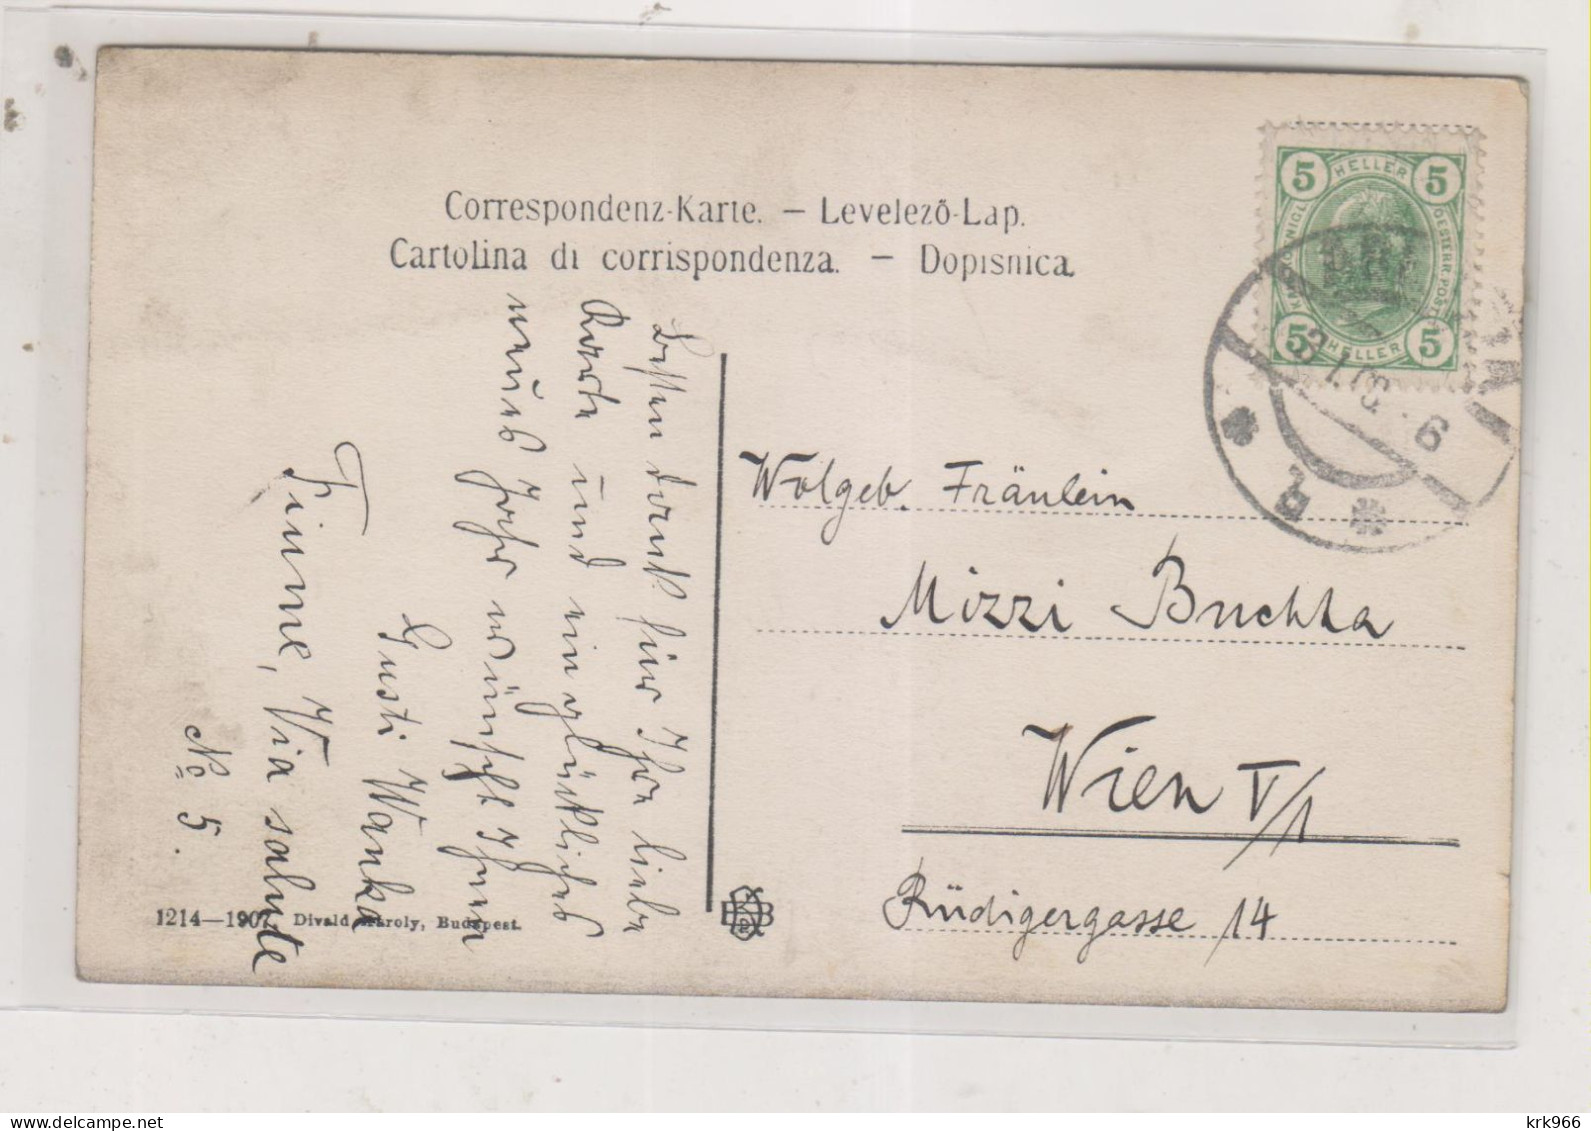 Correspondenz-Karte. — Levelező-Lap.
Cartolina di corrispondenza. — Dopisnica.
Besten Dank für Ihre liebe
Karte und ein glückliches
neues Jahr wünscht Ihnen
Gusti Wanka
Fiume, Via salute
No 5.
1214—1907. Divald Károly, Budapest.
5 HELLER 5
OESTERR.POST
5 HELLER 5
3.1.08 - 6
b
Wolgeb. Fräulein
Mizzi Buchta
Wien V/1
Rüdigergasse 14
krk966